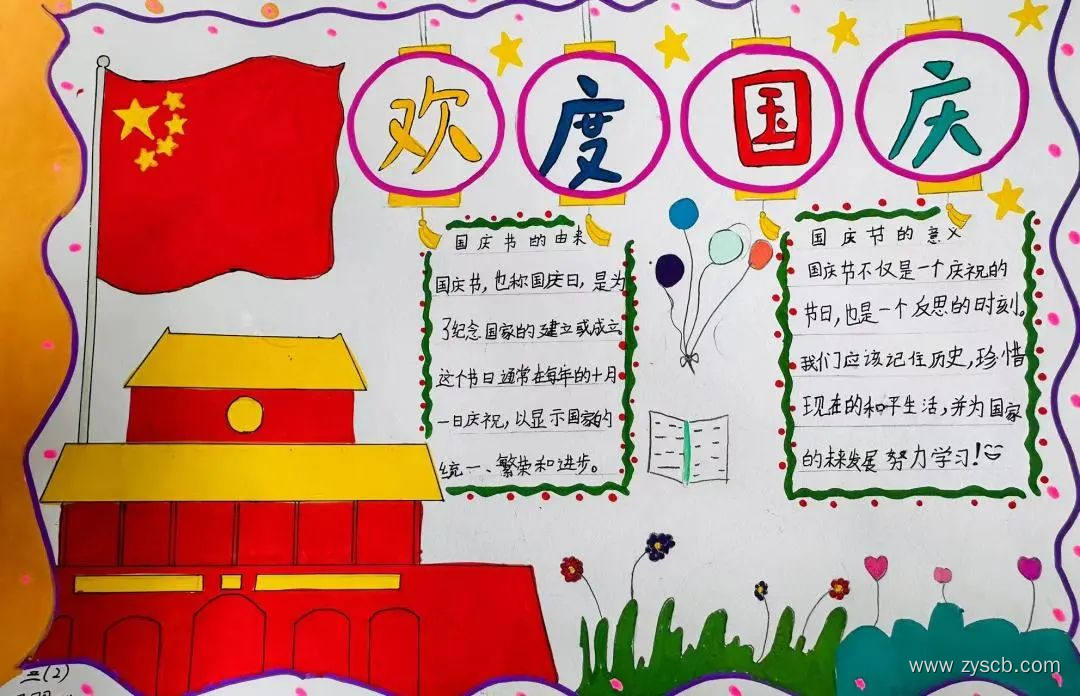 欢度国庆
国庆节的由来
国庆节,也称国庆日,是为
了纪念国家的建立或成立。
这个节日通常在每年的十月
一日庆祝,以显示国家的
统一、繁荣和进步。
国庆节的意义
国庆节不仅是一个庆祝的
节日,也是一个反思的时刻。
我们应该记住历史,珍惜
现在的和平生活,并为国家
的未来发展努力学习!
三(2)
www.zyscb.com